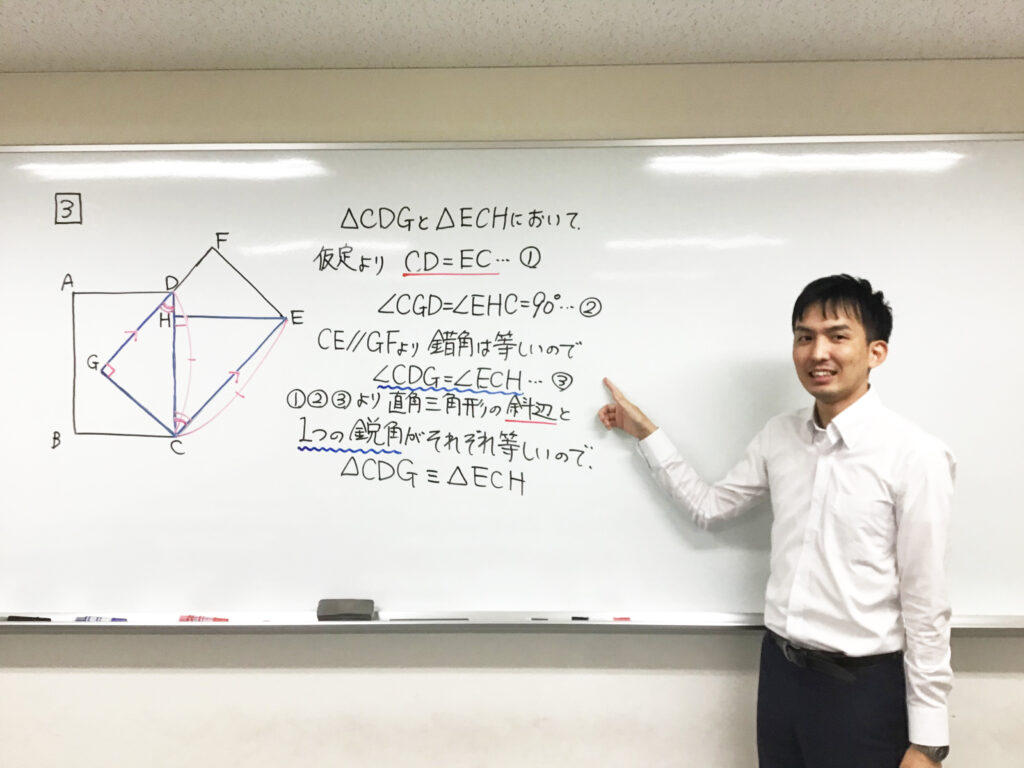 3
F
A
D
H
E
G
B
C
△CDGと△ECHにおいて、
仮定より CD=EC…①
∠CGD=∠EHC=90°…②
CE//GFより 錯角は等しいので
∠CDG=∠ECH…③
①②③より直角三角形の斜辺と
1つの鋭角がそれぞれ等しいので、
△CDG≡△ECH